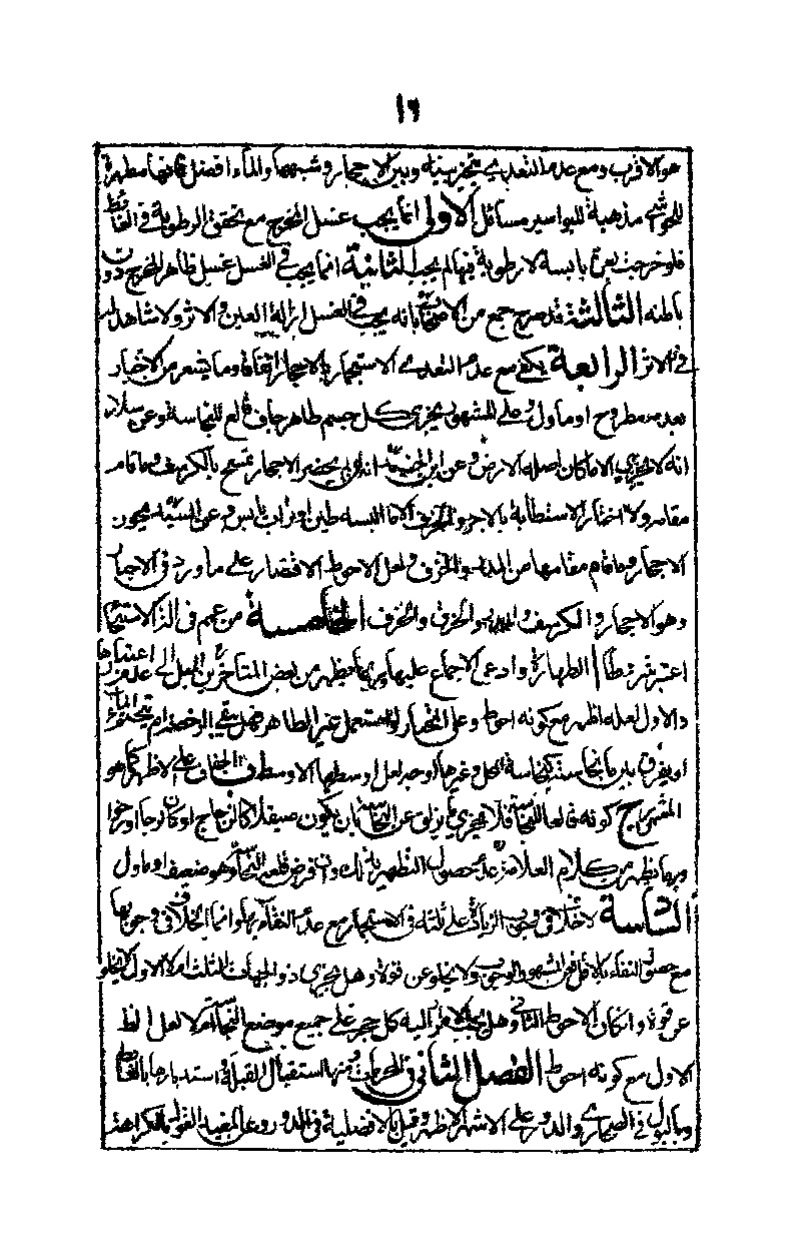 ١٦
هو الاقرب ومع عدم التعدي يتخير بينه وبين الاحجار وشبهها والماء افضل فانها مطهرة
للحواشي مذهبة للبواسير مسائل الاولى انما يجب غسل المخرج مع تحقق الرطوبة في الغائط
فلو خرجت بعرة يابسة لا رطوبة فيها لم يجب الثانية انما يجب في الغسل غسل ظاهر المخرج دون
باطنه الثالثة قد صرح جمع من الاصحاب بانه يجب في الغسل ازالة العين والاثر ولا شاهد له
في الاثر الرابعة يكفي مع عدم التعدي الاستجمار بالاحجار اتفاقا وما يشعر من الاخبار
بعدمه مطروح او ماول وعلى المشهور يجزي كل جسم طاهر جاف قالع للنجاسة وعن سلار
انه لا يجزي الا ما كان اصله الارض وعن ابن الجنيد انه ان لم يحضر الاحجار تمسح بالكرسف وما قام
مقامه ولا اختار الاستطابة بالاجر والخزف الا ما البسه طين او تراب يابس وعن السيد يجوز
الاحجار وما قام مقامها من المدر والخرق ولعل الاحوط الاقتصار على ما ورد في الاخبار
وهو الاحجار والكرسف والمدر والخرق والخزف الخامسة من عمم في الة الاستجمار
اعتبر شرطا الطهارة وادعي الاجماع عليها وربما يظهر من بعض المتاخرين الميل الى عدم اعتبارها
والاول لعله اظهر مع كونه احوط وعلى المختار لو استعمل غير الطاهر فهل يبقى الرخصة ام يتحتم الماء
او يفرق بين ما نجاسته كنجاسة المحل وغيرها اوجه لعل اوسطها الاوسط الجفاف على الاظهر كما هو
المشهور كونه قالعا للنجاسة فلا يجزي ما يزلق عن النجاسة بان يكون صيقلا كالزجاج او كان لزجا او رخوا
وربما يظهر من كلام العلامة عدم حصول التطهير بذلك وان فرض قلعه النجاسة وهو ضعيف او ماول
السادسة لا خلاف في وجوب الزيادة على ثلثة في الاستجمار مع عدم النقاء بها وانما الخلاف في وجوبها
مع حصول النقاء بالاقل فعن المشهور الوجوب ولا يخلو عن قوة وهل يجزي ذو الجهات الثلث ام لا الاول لا يخلو
عن قوة وان كان الاحوط الثاني وهل يجب امرار كل حجر على جميع موضع النجاسة ام لا لعل الظ
الاول مع كونه احوط الفصل الثاني في المحرمات فمنها استقبال القبلة واستدبارها بالغائط
وبالبول في الصحاري والدور على الاشهر الاظهر وقيل بالافضلية في الدور وعن المفيد القول بالكراهة